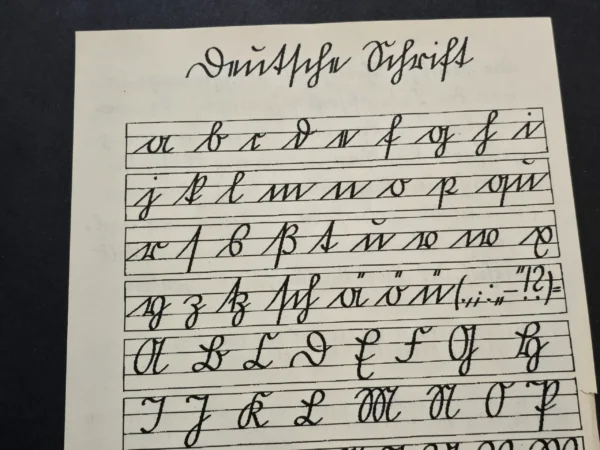 Deutsche Schrift
a b c d e f g h i
j k l m n o p qu
r ſ s ß t u v w x
y z tz ſch ä ö ü (.,;:„–"!?)=
A B C D E F G H
I J K L M N O P